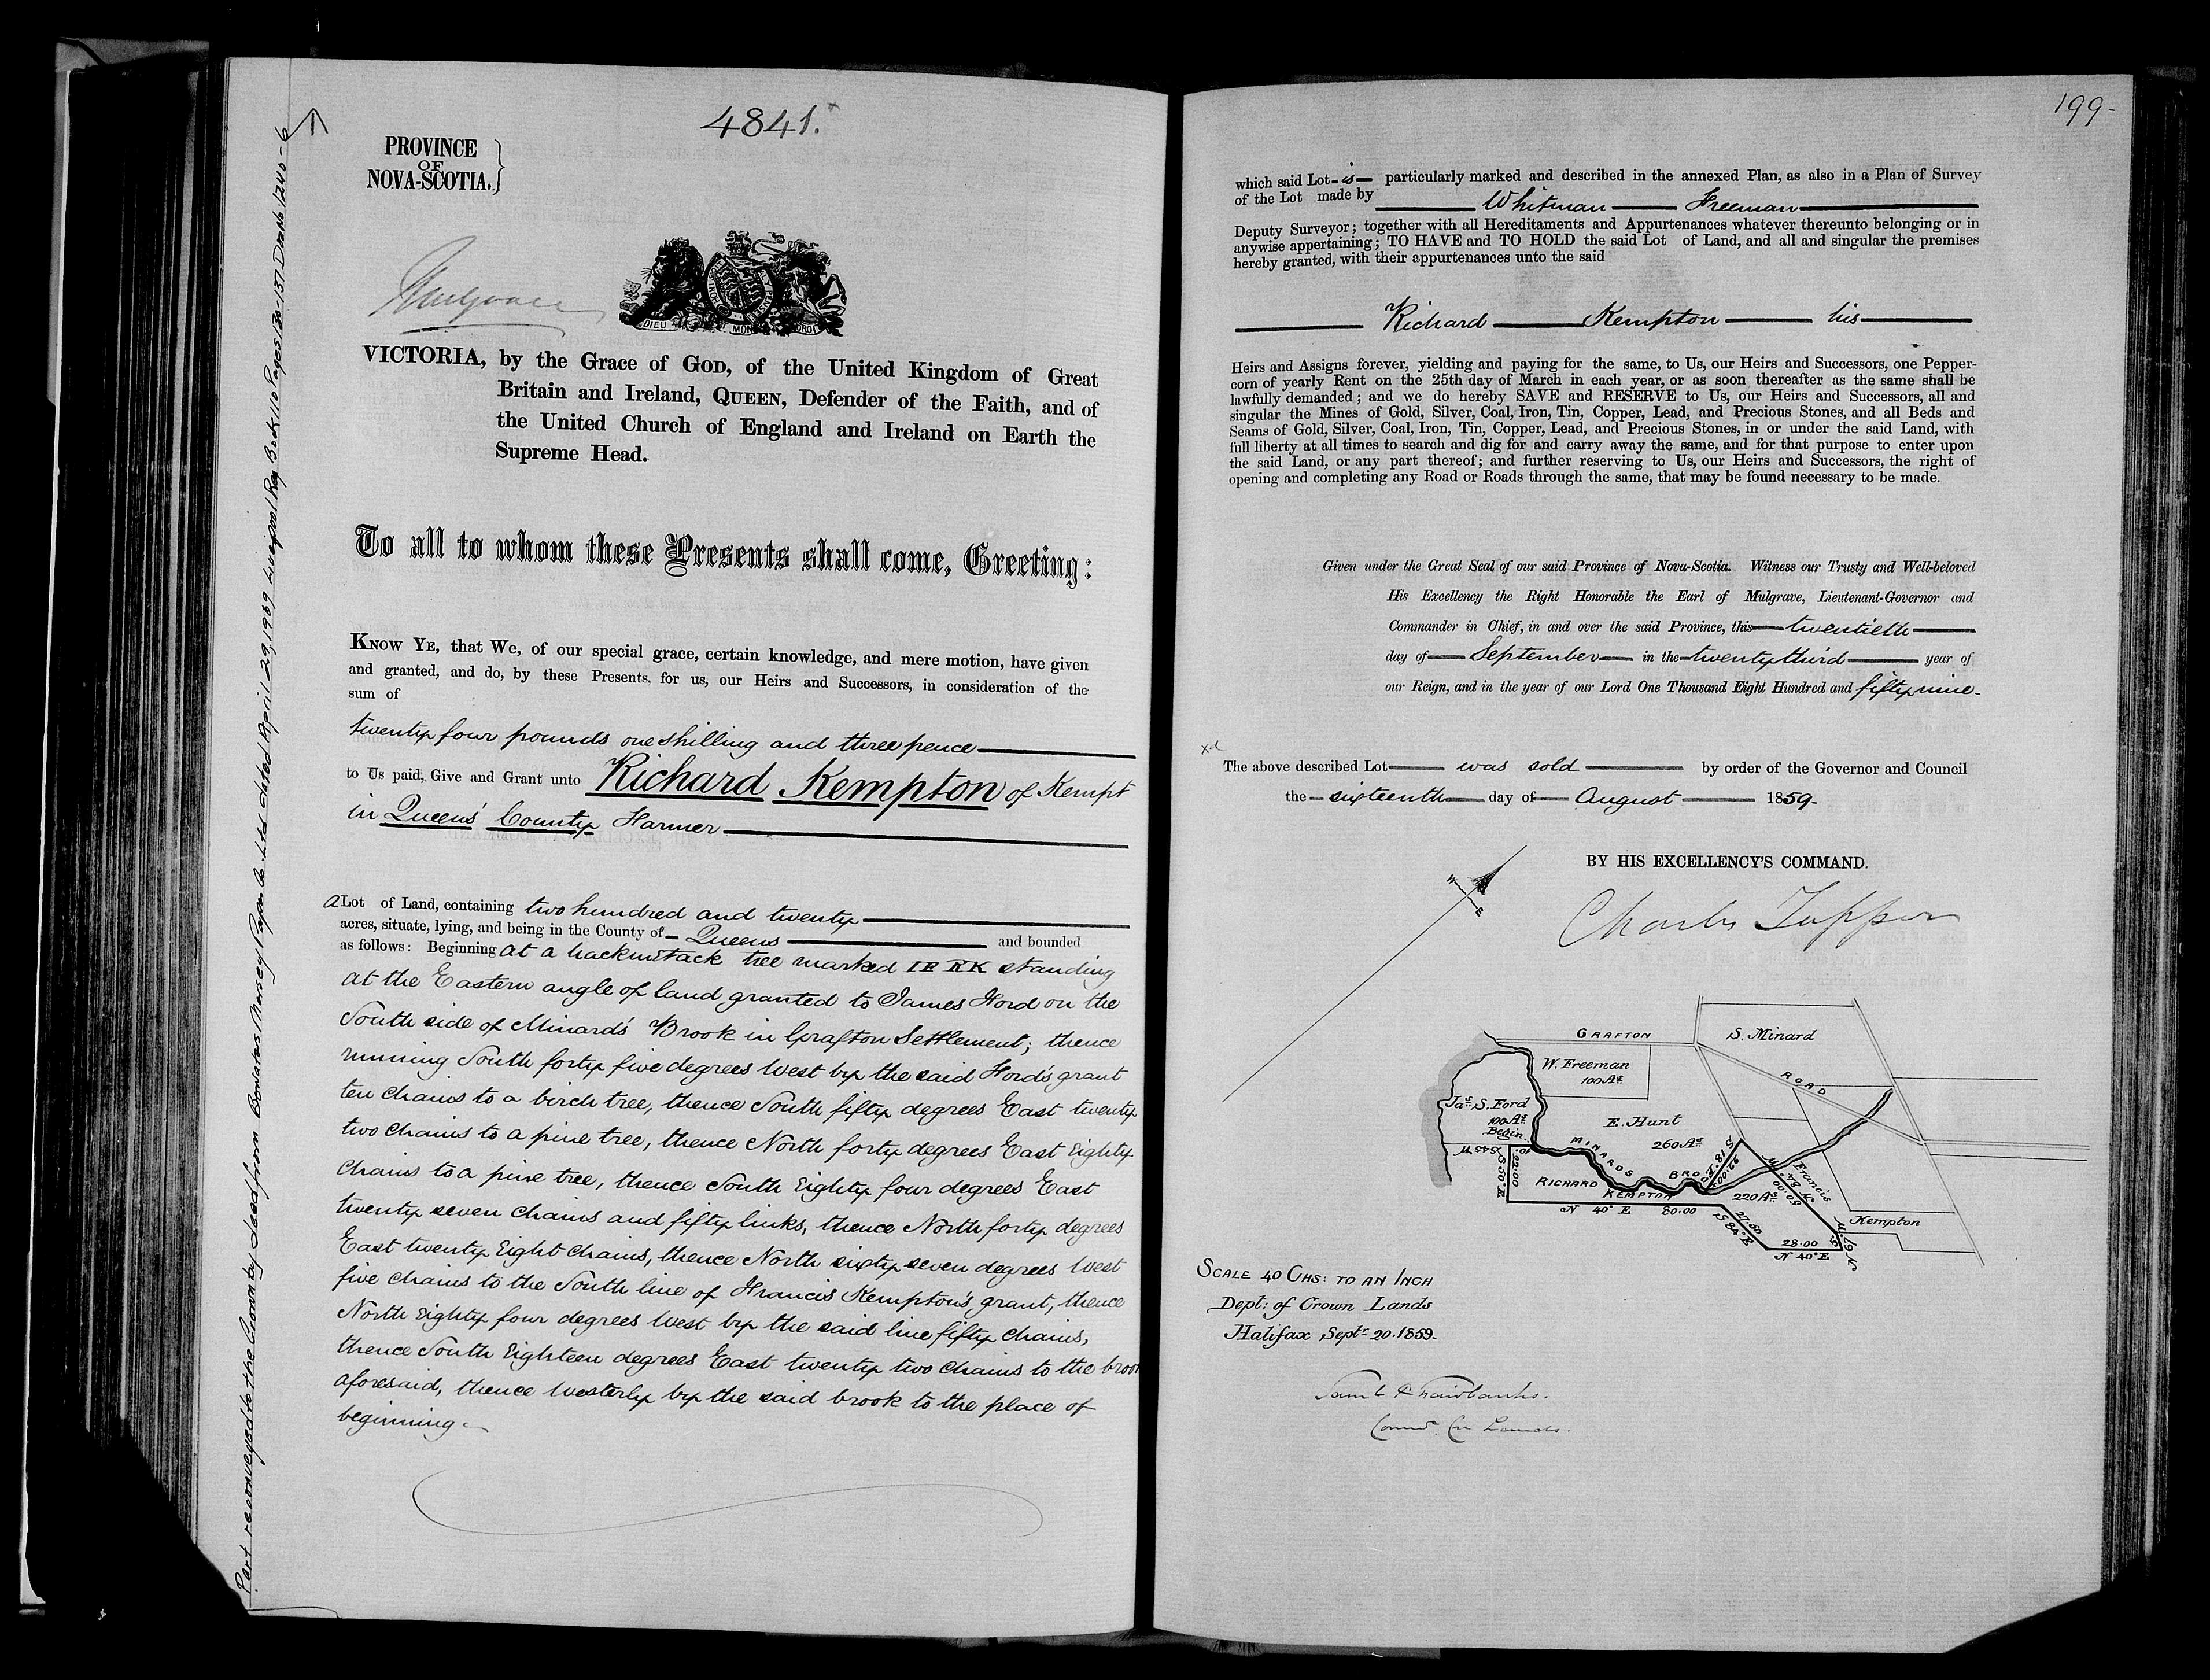 4841.
PROVINCE
OF
NOVA-SCOTIA.}
Mulgrave
DIEU ET MON DROIT
VICTORIA, by the Grace of GOD, of the United Kingdom of Great
Britain and Ireland, QUEEN, Defender of the Faith, and of
the United Church of England and Ireland on Earth the
Supreme Head.
To all to whom these Presents shall come, Greeting:
KNOW YE, that We, of our special grace, certain knowledge, and mere motion, have given
and granted, and do, by these Presents, for us, our Heirs and Successors, in consideration of the
sum of
twenty four pounds one shilling and three pence
to Us paid, Give and Grant unto Richard Kempton of Kempt
in Queens' County Farmer
a Lot of Land, containing two hundred and twenty
acres, situate, lying, and being in the County of Queens and bounded
as follows: Beginning at a hackmetack tree marked IF RK standing
at the Eastern angle of land granted to James Ford on the
South side of Minard's Brook in Grafton Settlement; thence
running South forty five degrees West by the said Ford's grant
ten chains to a birch tree, thence South fifty degrees East twenty
two chains to a pine tree, thence North forty degrees East Eighty
Chains to a pine tree, thence South Eighty four degrees East
twenty seven Chains and fifty links, thence North forty degrees
East twenty Eight Chains, thence North sixty seven degrees West
five chains to the South line of Francis Kempton's grant, thence
North Eighty four degrees West by the said line fifty chains,
thence South Eighteen degrees East twenty two Chains to the brook
aforesaid, thence Westerly by the said brook to the place of
beginning.
Part reconveyed to the Crown by deed from Bowaters Mersey Paper Co. Ltd. dated April 29, 1969 Liverpool Reg Book 110 Pages 130-137 Dr. No 1240-6
199-
which said Lot is particularly marked and described in the annexed Plan, as also in a Plan of Survey
of the Lot made by Whitman Freeman
Deputy Surveyor; together with all Hereditaments and Appurtenances whatever thereunto belonging or in
anywise appertaining; TO HAVE and TO HOLD the said Lot of Land, and all and singular the premises
hereby granted, with their appurtenances unto the said
Richard Kempton his
Heirs and Assigns forever, yielding and paying for the same, to Us, our Heirs and Successors, one Pepper-
corn of yearly Rent on the 25th day of March in each year, or as soon thereafter as the same shall be
lawfully demanded; and we do hereby SAVE and RESERVE to Us, our Heirs and Successors, all and
singular the Mines of Gold, Silver, Coal, Iron, Tin, Copper, Lead, and Precious Stones, and all Beds and
Seams of Gold, Silver, Coal, Iron, Tin, Copper, Lead, and Precious Stones, in or under the said Land, with
full liberty at all times to search and dig for and carry away the same, and for that purpose to enter upon
the said Land, or any part thereof; and further reserving to Us, our Heirs and Successors, the right of
opening and completing any Road or Roads through the same, that may be found necessary to be made.
Given under the Great Seal of our said Province of Nova-Scotia. Witness our Trusty and Well-beloved
His Excellency the Right Honorable the Earl of Mulgrave, Lieutenant-Governor and
Commander in Chief, in and over the said Province, this twentieth
day of September in the twenty third year of
our Reign, and in the year of our Lord One Thousand Eight Hundred and fifty nine.
The above described Lot was sold by order of the Governor and Council
the sixteenth day of August 1859.
BY HIS EXCELLENCY'S COMMAND.
Charles Tupper
GRAFTON
ROAD
S. Minard
W. Freeman
100 As.
Jas. S. Ford
100 As.
Begin.
E. Hunt
260 As.
S 45 W
10.
S 50° E
22.00
MINARDS BRO
RICHARD KEMPTON
220 As.
N 40° E 80.00
S 18 E
22.00
S 84° E
27.50
28.00
N 40° E
N 67 W
5
N 84 W
50.00
Francis
Kempton
SCALE 40 CHS: TO AN INCH
Dept: of Crown Lands
Halifax Septr 20. 1859.
Saml P Fairbanks.
Commr Cn Lands.